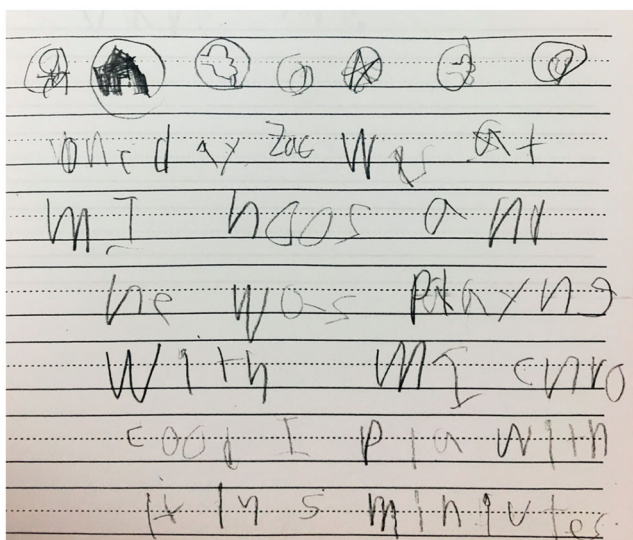 one day Zac was at
mI hoos and
he was playng
With MI cnro
cood I pla with
it In 5 minutes